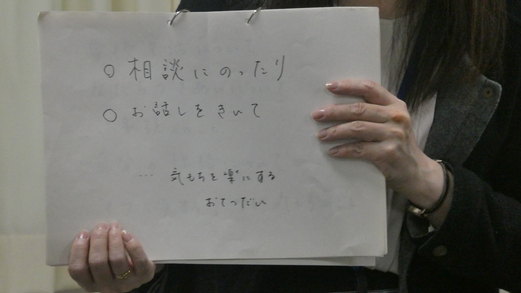 ○ 相談にのったり
○ お話しをきいて
… 気もちを楽にする
おてつだい